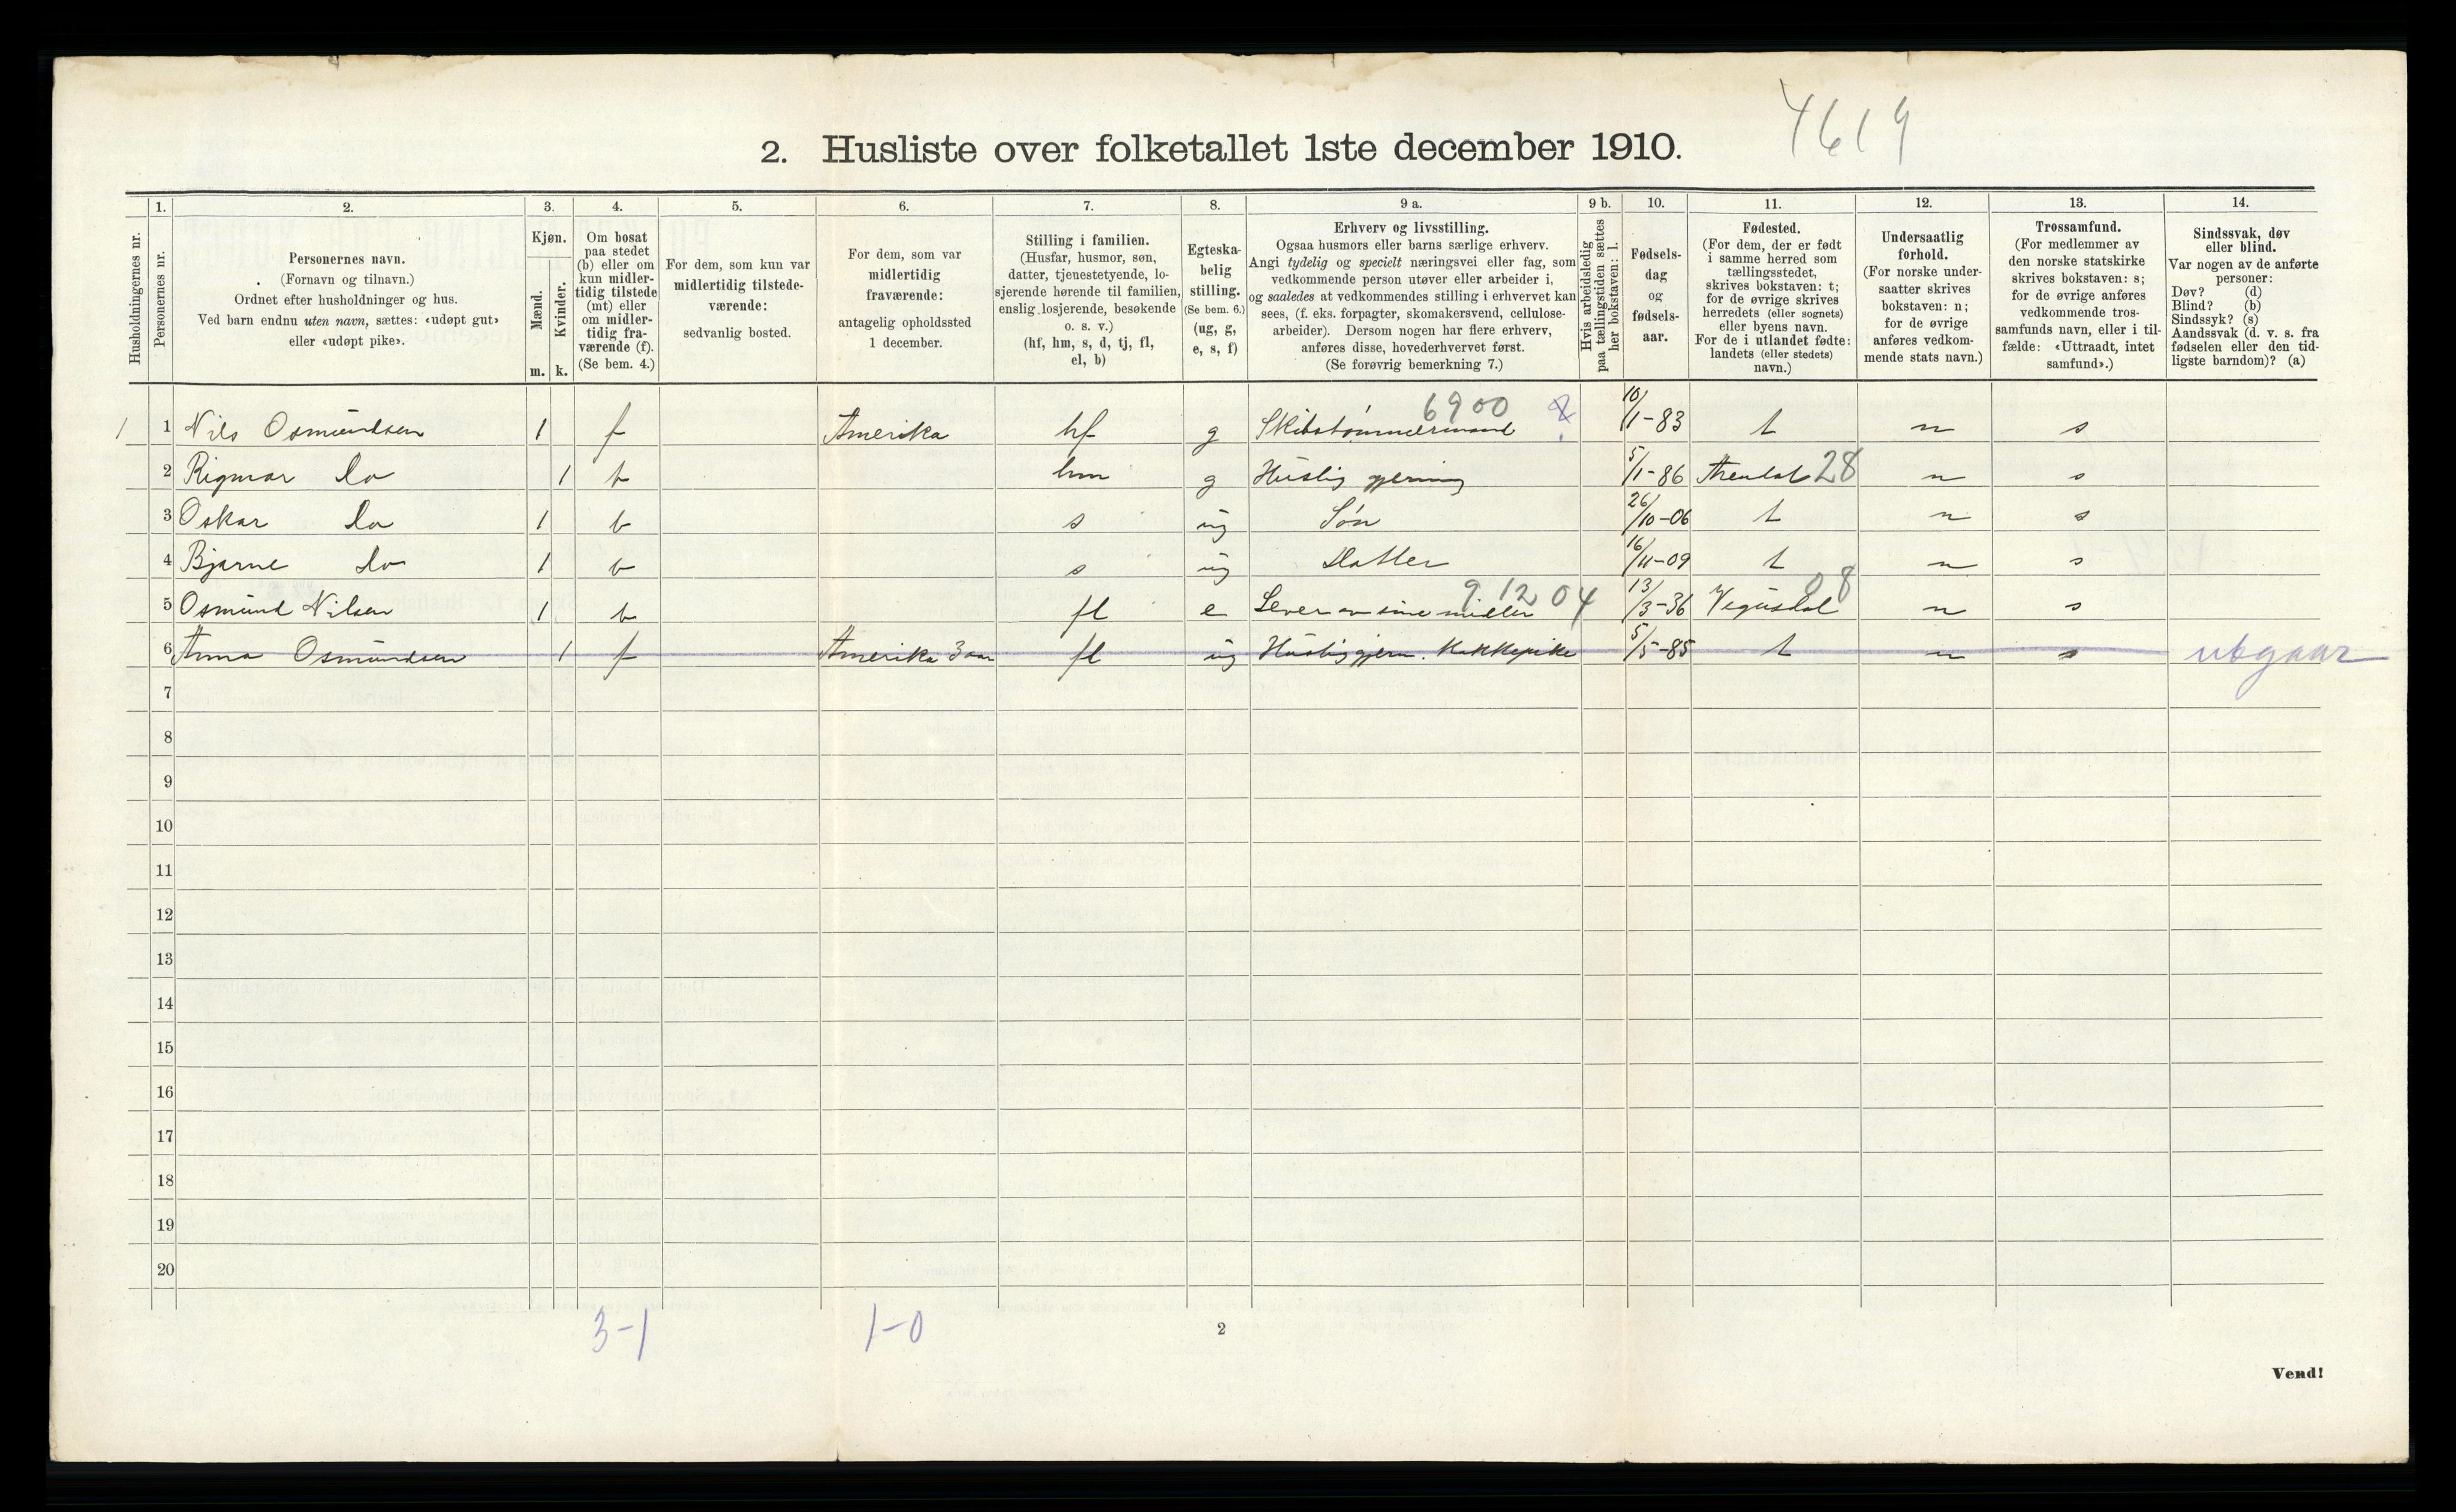 4619
2. Husliste over folketallet 1ste december 1910.
Husholdningernes nr.
1.
Personernes nr.
2.
Personernes navn.
(Fornavn og tilnavn.)
Ordnet efter husholdninger og hus.
Ved barn endnu uten navn, sættes: «udøpt gut»
eller «udøpt pike».
3.
Kjøn.
Mænd.
Kvinder.
m. k.
4.
Om bosat
paa stedet
(b) eller om
kun midler-
tidig tilstede
(mt) eller
om midler-
tidig fra-
værende (f).
(Se bem. 4.)
5.
For dem, som kun var
midlertidig tilstede-
værende:
sedvanlig bosted.
6.
For dem, som var
midlertidig
fraværende:
antagelig opholdssted
1 december.
7.
Stilling i familien.
(Husfar, husmor, søn,
datter, tjenestetyende, lo-
sjerende hørende til familien,
enslig losjerende, besøkende
o. s. v.)
(hf, hm, s, d, tj, fl,
el, b)
8.
Egteska-
belig
stilling.
(Se bem. 6.)
(ug, g,
e, s, f)
9 a.
Erhverv og livsstilling.
Ogsaa husmors eller barns særlige erhverv.
Angi tydelig og specielt næringsvei eller fag, som
vedkommende person utøver eller arbeider i,
og saaledes at vedkommendes stilling i erhvervet kan
sees, (f. eks. forpagter, skomakersvend, cellulose-
arbeider). Dersom nogen har flere erhverv,
anføres disse, hovederhvervet først.
(Se forøvrig bemerkning 7.)
9 b.
Hvis arbeidsledig
paa tællingstiden sættes
her bokstaven: l.
10.
Fødsels-
dag
og
fødsels-
aar.
11.
Fødested.
(For dem, der er født
i samme herred som
tællingsstedet,
skrives bokstaven: t;
for de øvrige skrives
herredets (eller sognets)
eller byens navn.
For de i utlandet fødte:
landets (eller stedets)
navn.)
12.
Undersaatlig
forhold.
(For norske under-
saatter skrives
bokstaven: n;
for de øvrige
anføres vedkom-
mende stats navn.)
13.
Trossamfund.
(For medlemmer av
den norske statskirke
skrives bokstaven: s;
for de øvrige anføres
vedkommende tros-
samfunds navn, eller i til-
fælde: «Uttraadt, intet
samfund».)
14.
Sindssvak, døv
eller blind.
Var nogen av de anførte
personer:
Døv? (d)
Blind? (b)
Sindssyk? (s)
Aandssvak (d. v. s. fra
fødselen eller den tid-
ligste barndom)? (a)
1 1 Nils Osmundsen 1 f Amerika hf g Skibstømmermand 6900 10/1-83 t n s
2 Rigmor do 1 b hm g Huslig gjerning 5/1-86 Arendal 28 n s
3 Oskar do 1 b s ug Søn 26/10-06 t n s
4 Bjarne do 1 b s ug Datter 16/11-09 t n s
5 Osmund Nilsen 1 b fl e Lever av sine midler 9 12 04 13/3-36 Vegusdal 08 n s
6 Anna Osmundsen 1 f Amerika 3 aar fl ug Huslig gjern. Kokkepike 5/5-85 t n s utgaar
7
8
9
10
11
12
13
14
15
16
17
18
19
20
3-1 1-0
2
Vend!